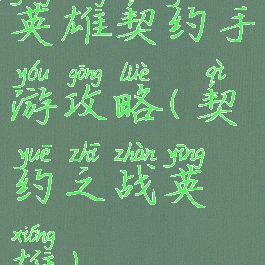 英雄契约手
yóu gōng lüè qì
游攻略(契
yuē zhī zhàn yīng
约之战英
xióng
雄)